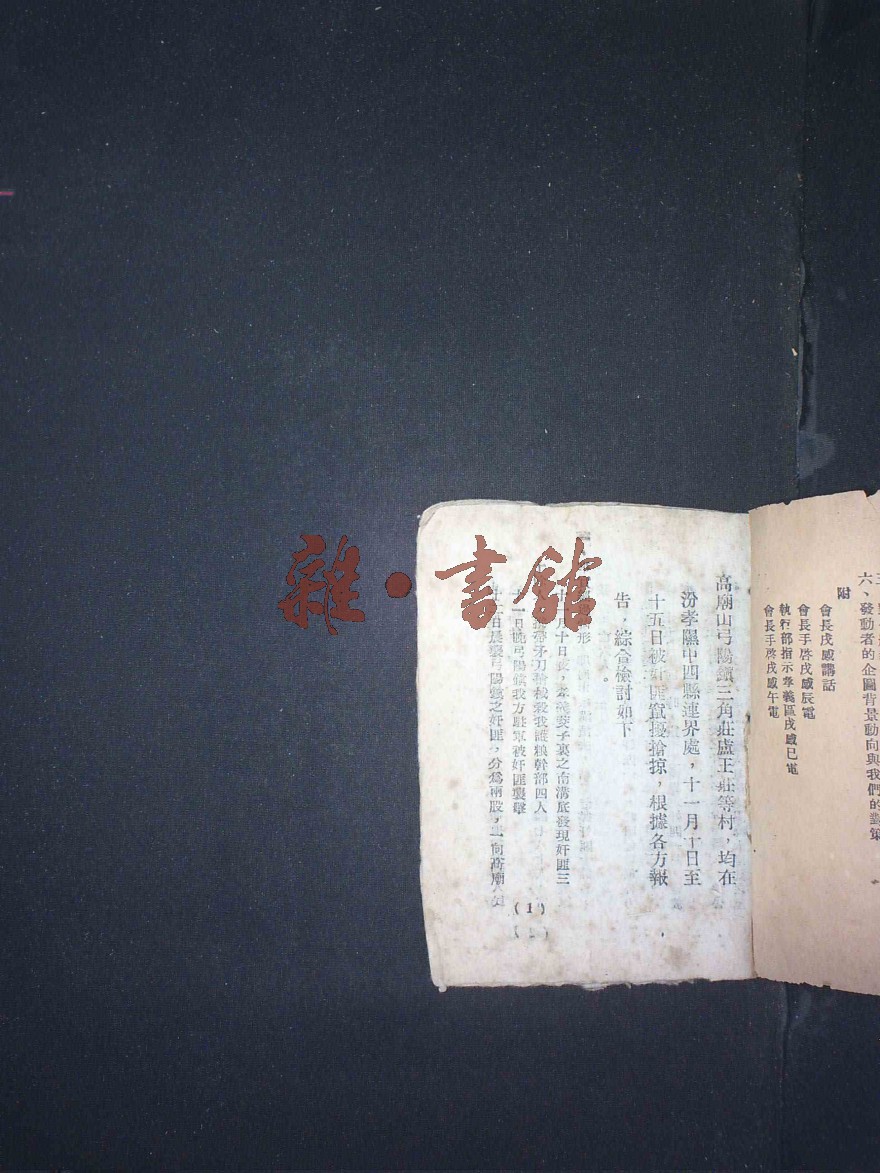 六、發動者的企圖背景動向與我們的對策
附
會長戌感講話
會長手啓戌感辰電
執行部指示孝義區戌感巳電
會長手啓戌感午電
高廟山弓陽鎮三角莊盧王莊等村，均在
汾孝隰中四縣連界處，十一月十日至
十五日被奸匪竄擾搶掠，根據各方報
告，綜合檢討如下
形
月十日夜，孝義 子裏之南溝底發現奸匪三
矛刀 我 糧幹部四人
一日晚弓陽鎮我方駐軍被奸匪襲擊
日晨襲弓陽鎮之奸匪，分為兩股，一向高廟
(1)
雜·書館